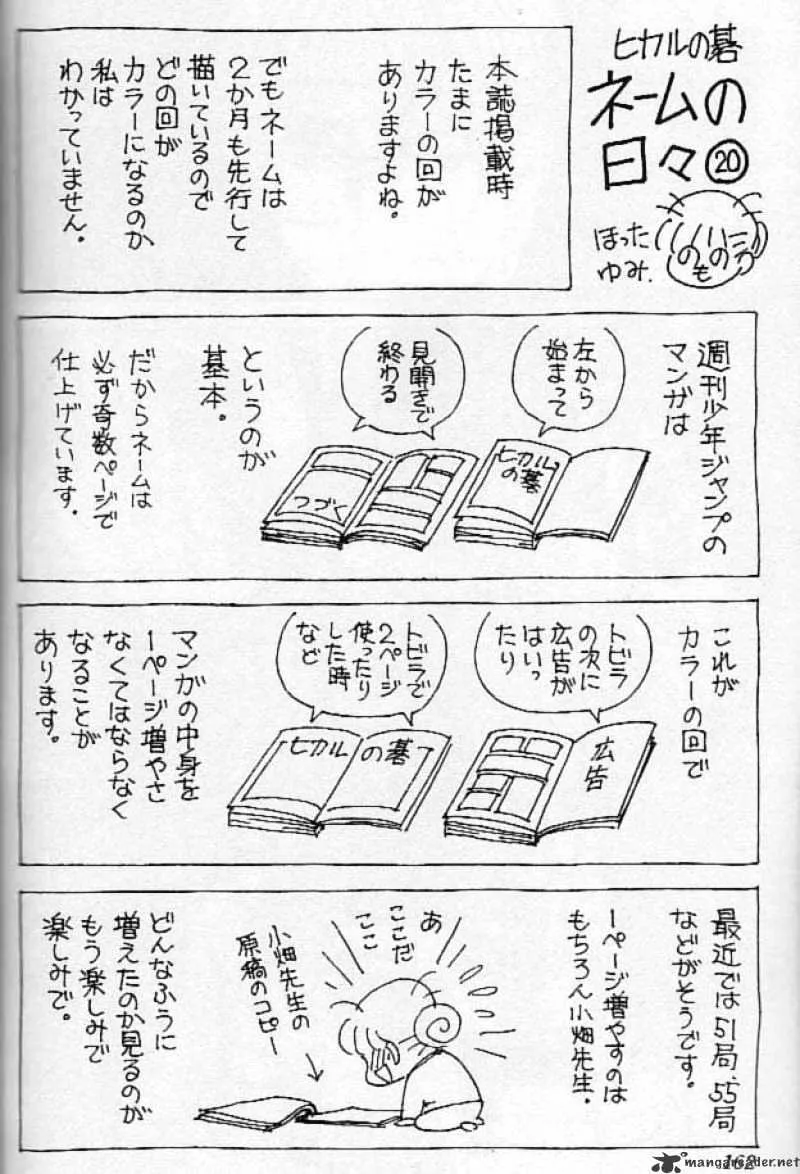 ヒカルの碁
ネームの
日々⑳
ほった
ゆみ.
本誌掲載時
たまに
カラーの回が
ありますよね。
でもネームは
2か月も先行して
描いているので
どの回が
カラーになるのか
私は
わかっていません。
週刊少年ジャンプの
マンガは
左から
始まって
ヒカル
の碁
見開きで
終わる
つづく
というのが
基本。
だからネームは
必ず奇数ページで
仕上げています.
これが
カラーの回で
トビラ
の次に
広告が
はいっ
たり
広告
トビラで
2ページ
使ったり
した時
など
ヒカル の碁
マンガの中身を
1ページ増やさ
なくてはならなく
なることが
あります。
最近では51局、55局
などがそうです。
1ページ増やすのは
もちろん小畑先生.
あ
ここだ
ここ
小畑先生の
原稿のコピー
どんなふうに
増えたのか見るのが
もう楽しみで
楽しみで。
mangareader.net